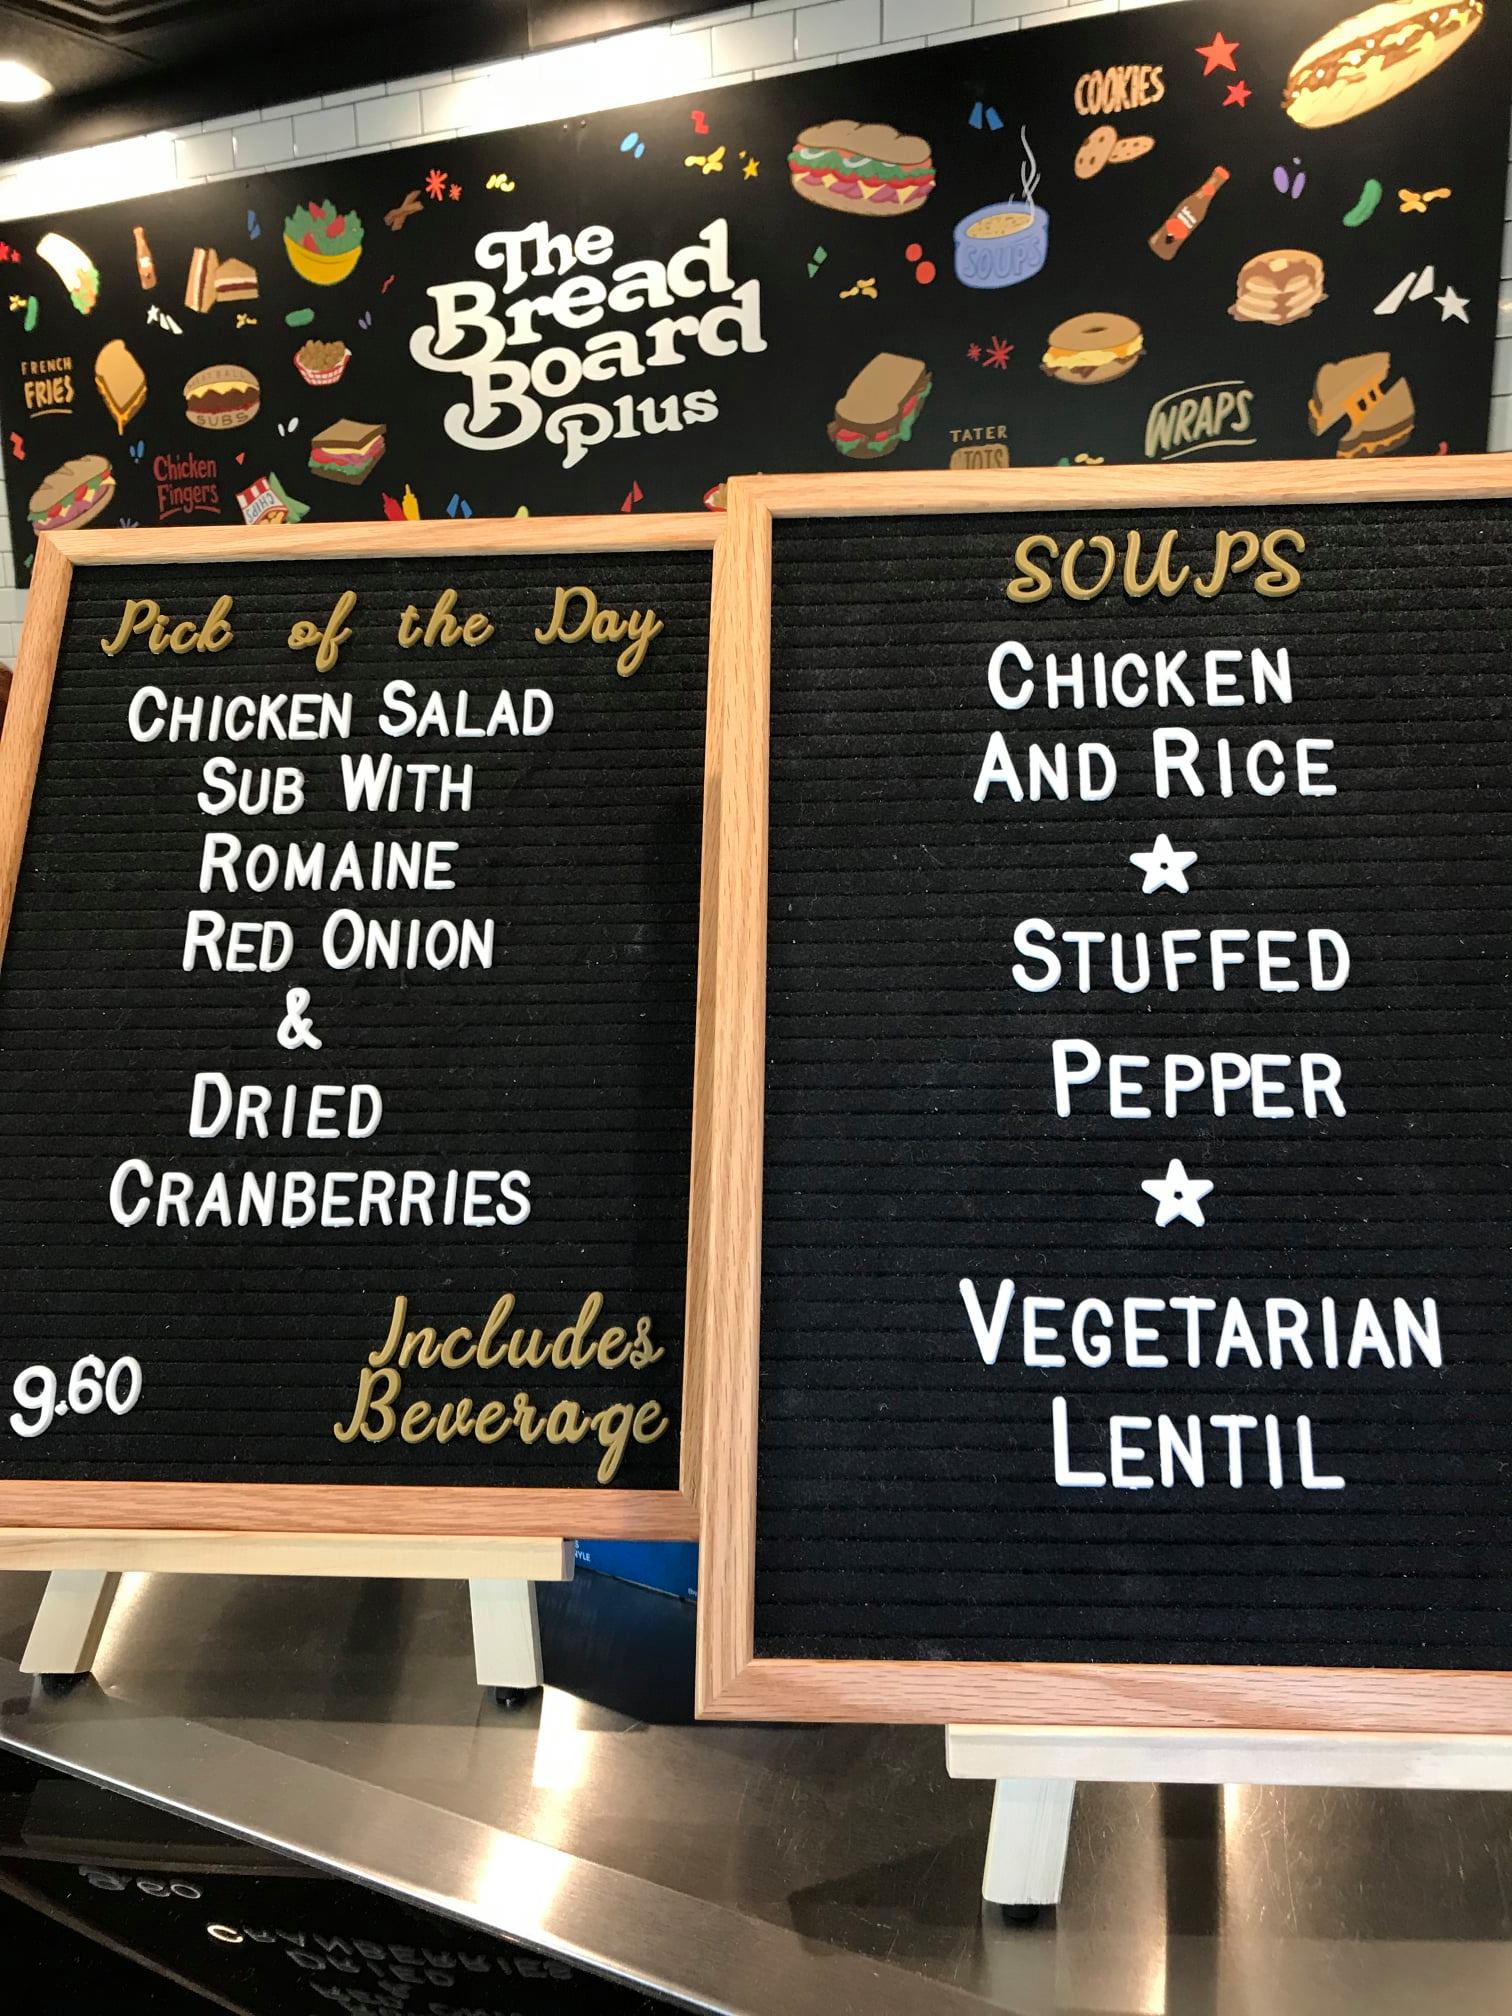 The
Bread
Board
Plus
COOKIES
SOUPS
FRENCH
FRIES
MEATBALL
SUBS
Chicken
Fingers
CHIPS
TATER
TOTS
WRAPS
Pick of the Day
CHICKEN SALAD
SUB WITH
ROMAINE
RED ONION
&
DRIED
CRANBERRIES
9.60
Includes
Beverage
SOUPS
CHICKEN
AND RICE
STUFFED
PEPPER
VEGETARIAN
LENTIL